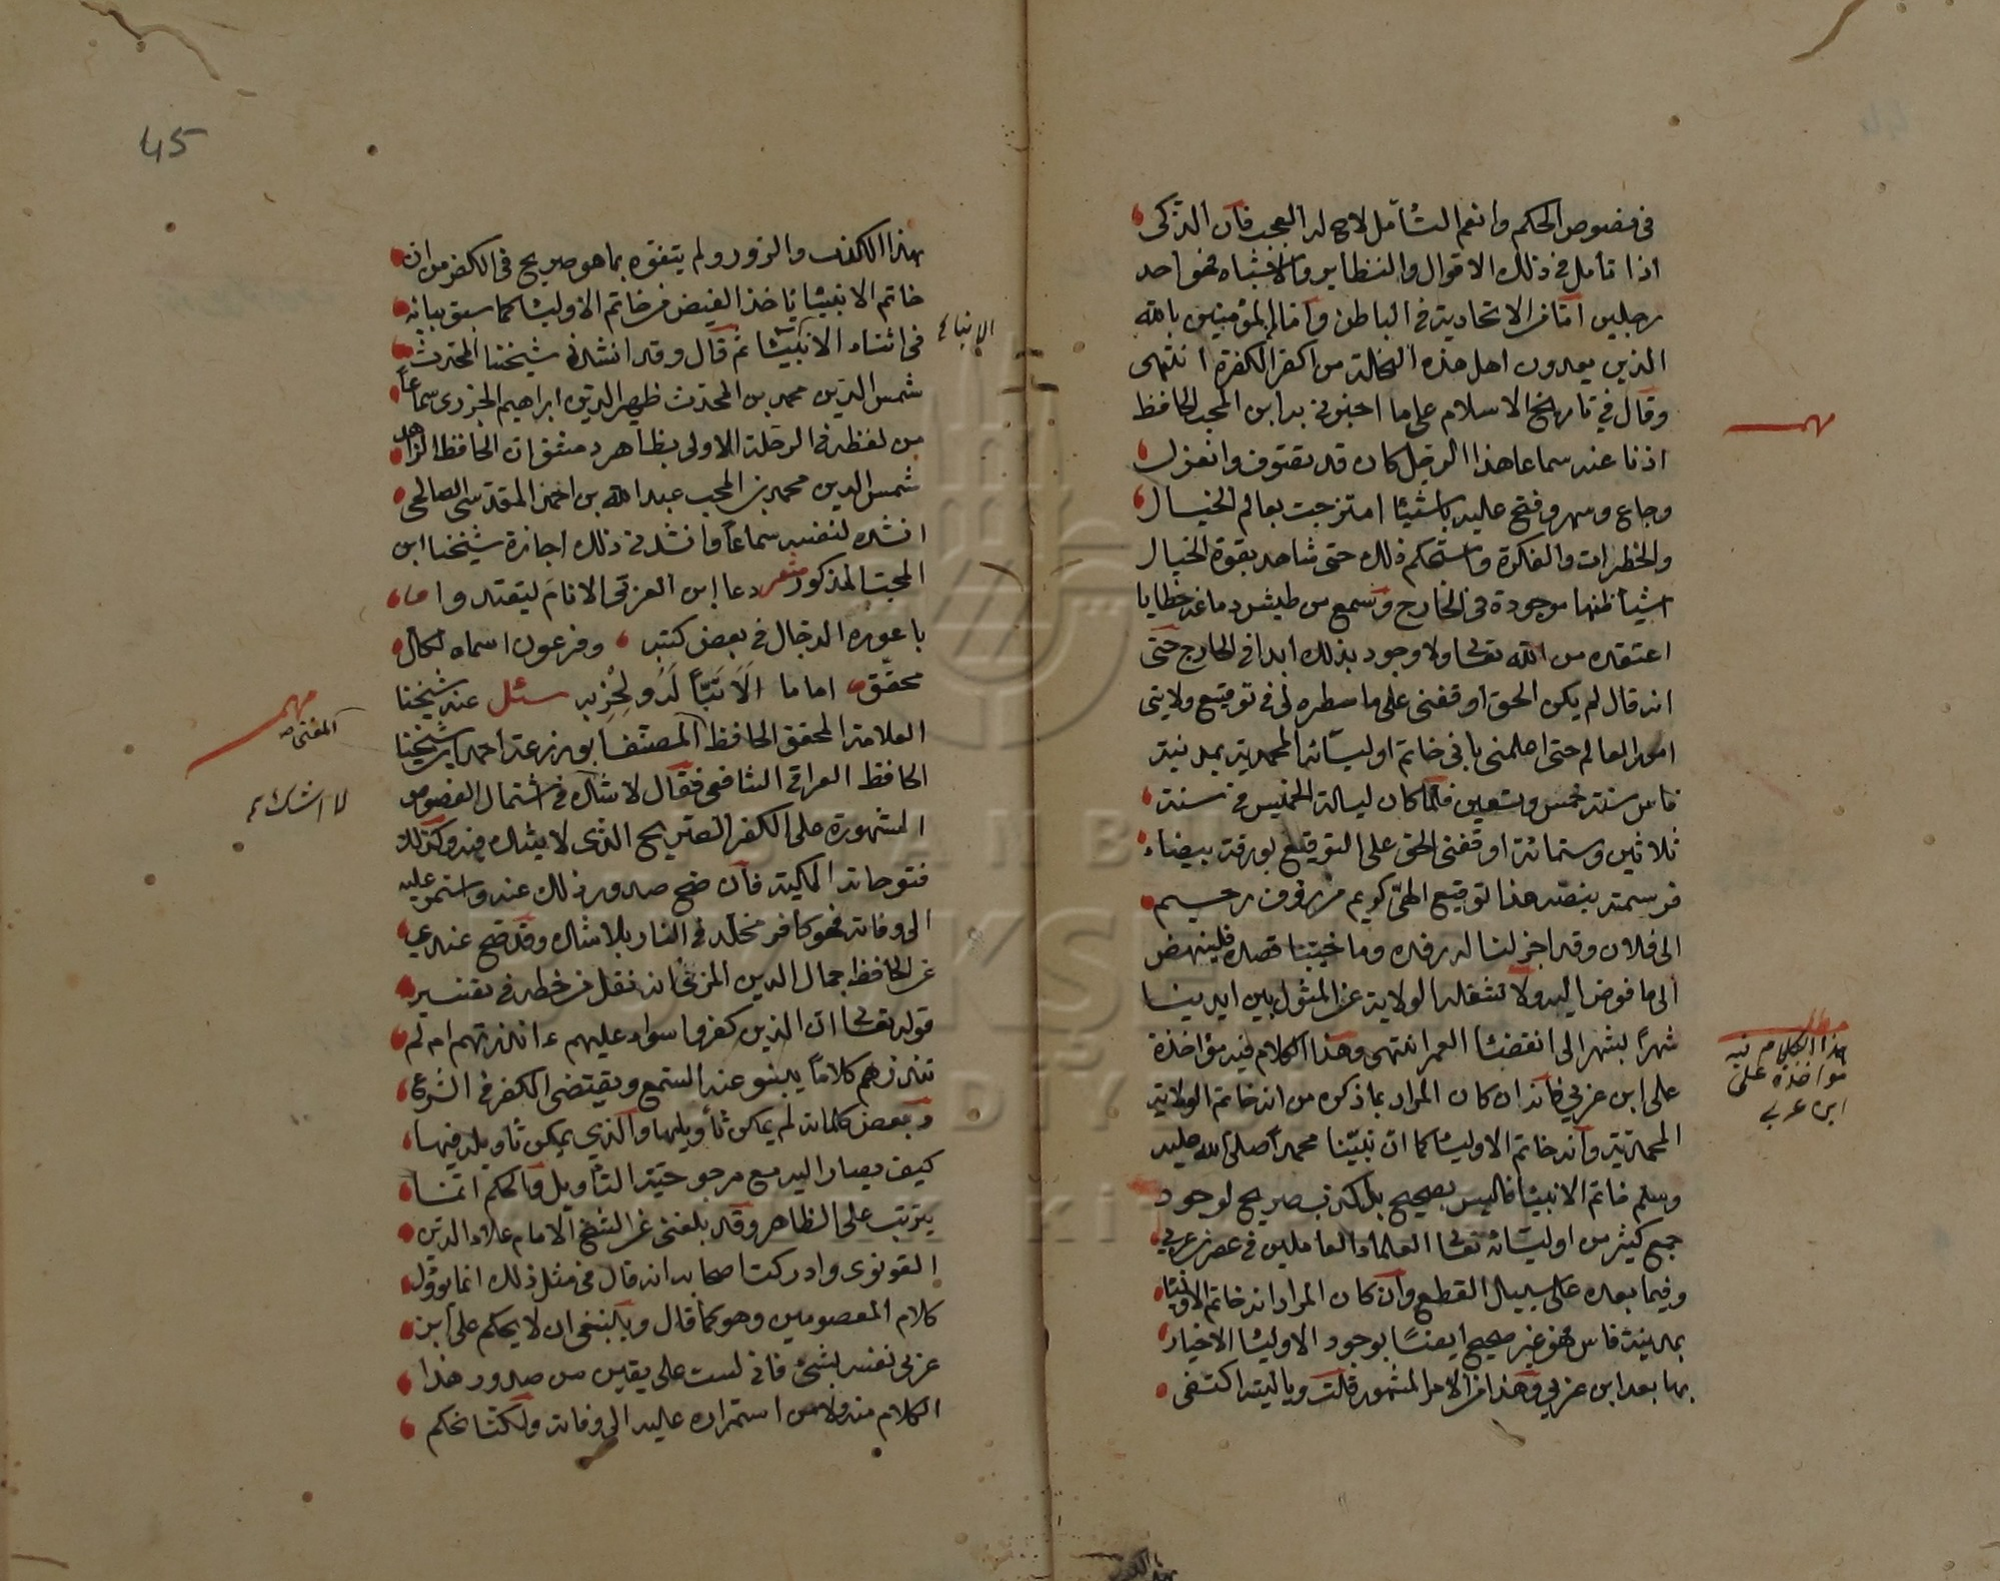 في فصوص الحكم وانعم التأمل لاح له العجب فان الذكى
اذا تأمل في ذلك الاقوال والنظاير والاشباه فهو احد
رجلين اما من الاتحادية في الباطن واما من المؤمنين بالله
الذين يعدون اهل هذه النحلة من اكفر الكفرة انتهى
وقال في تاريخ الاسلام على ما اخبرني به ابن المحب الحافظ
اذنا عنه سماعا هذا الرجل كان قد تصوف وانعزل
وجاع وسهر وفتح عليه باشياء امتزجت بعالم الخيال
والخطرات والفكرة واستحكم ذلك حتى شاهد بقوة الخيال
اشياء ظنها موجودة في الخارج وسمع من طيش دماغه خطابا
اعتقده من الله تعالى ولا وجود بذلك ابدا في الخارج حتى
انه قال لم يكن الحق اوقفني على ما سطره لي في توقيع ولايتى
امور العالم حتى اعلمني باني خاتم اوليائه المحمدية بمدينة
فاس سنة خمس وتسعين فلما كان ليلة الخميس في سنة
ثلاثين وستمائة اوقفني الحق على التوقيع بورقة بيضاء
فرسمته بنصه هذا توقيع الهي كريم من رؤف رحيم
الى فلان وقد اجزلنا له رفده وما خيبنا قصده فلينهض
الى ما فوض اليه ولا تشغله الولاية عن المثول بين ايدينا
شهرا بشهر الى انقضاء العمر انتهى وهذا الكلام فيه مؤاخذة
على ابن عربي فانه ان كان المراد بما ذكره من انه خاتم الولاية
المحمدية وانه خاتم الاولياء كما ان نبينا محمدا صلى الله عليه
وسلم خاتم الانبياء فليس بصحيح بل كذب صريح لوجود
جمع كثير من اوليائه تعالى العلماء العاملين في عصر ابن عربي
وفيما بعده على سبيل القطع وان كان المراد انه خاتم الاولياء
بمدينة فاس فهو غير صحيح ايضا بوجود الاولياء الاخيار
بها بعد ابن عربي وهذا من الامر المشهور قلت وياليته اكتفى
مهم
مطلب
هذا الكلام فيه
مؤاخذة على
ابن عربي
45
بهذا الكذب والزور ولم يتفوه بما هو صريح في الكفر من ان
خاتم الانبياء يأخذ الفيض من خاتم الاولياء كما سبق بيانه
في اثناء الانباء ثم قال وقد انشدني شيخنا المحدث
شمس الدين محمد بن المحدث ظهير الدين ابراهيم الجزري سماعا
من لفظه في الرحلة الاولى بظاهر دمشق ان الحافظ الزاهد
شمس الدين محمد بن المحب عبد الله بن احمد المقدسي الصالحي
انشده لنفسه سماعا وانشدني ذلك اجازة شيخنا ابن
المحب المذكور شعر دعا ابن العربي الانام ليقتدوا
باعوره الدجال في بعض كتبه وفرعون اسماه لكل
محقق اماما الا تبا له ولحزبه سئل عنه شيخنا
العلامة المحقق الحافظ المصنف ابو زرعة احمد ابن شيخنا
الحافظ العراقي الشافعي فقال لا شك في اشتمال الفصوص
المشهورة على الكفر الصريح الذي لا يشك فيه وكذلك
فتوحاته المكية فان صح صدور ذلك عنه واستمر عليه
الى وفاته فهو كافر مخلد في النار بلا شك وقد صح عندي
عن الحافظ جمال الدين المزي انه نقل من خطه في تفسير
قوله تعالى ان الذين كفروا سواء عليهم ءانذرتهم ام لم
تنذرهم كلاما ينبو عنه السمع ويقتضى الكفر في الشرع
وبعض كلماته لم يمكن تأويلها والذي يمكن تأويله فيها
كيف يصار اليه مع مرجوحية التأويل والحكم انما
يترتب على الظاهر وقد بلغني عن الشيخ الامام علاء الدين
القونوي وادركت اصحابه انه قال في مثل ذلك انما يؤول
كلام المعصومين وهو كما قال وينبغي ان لا يحكم على ابن
عربي نفسه بشئ فاني لست على يقين من صدور هذا
الكلام منه ولا من استمراره عليه الى وفاته ولكنا نحكم
الانباء
مهم
المفتى